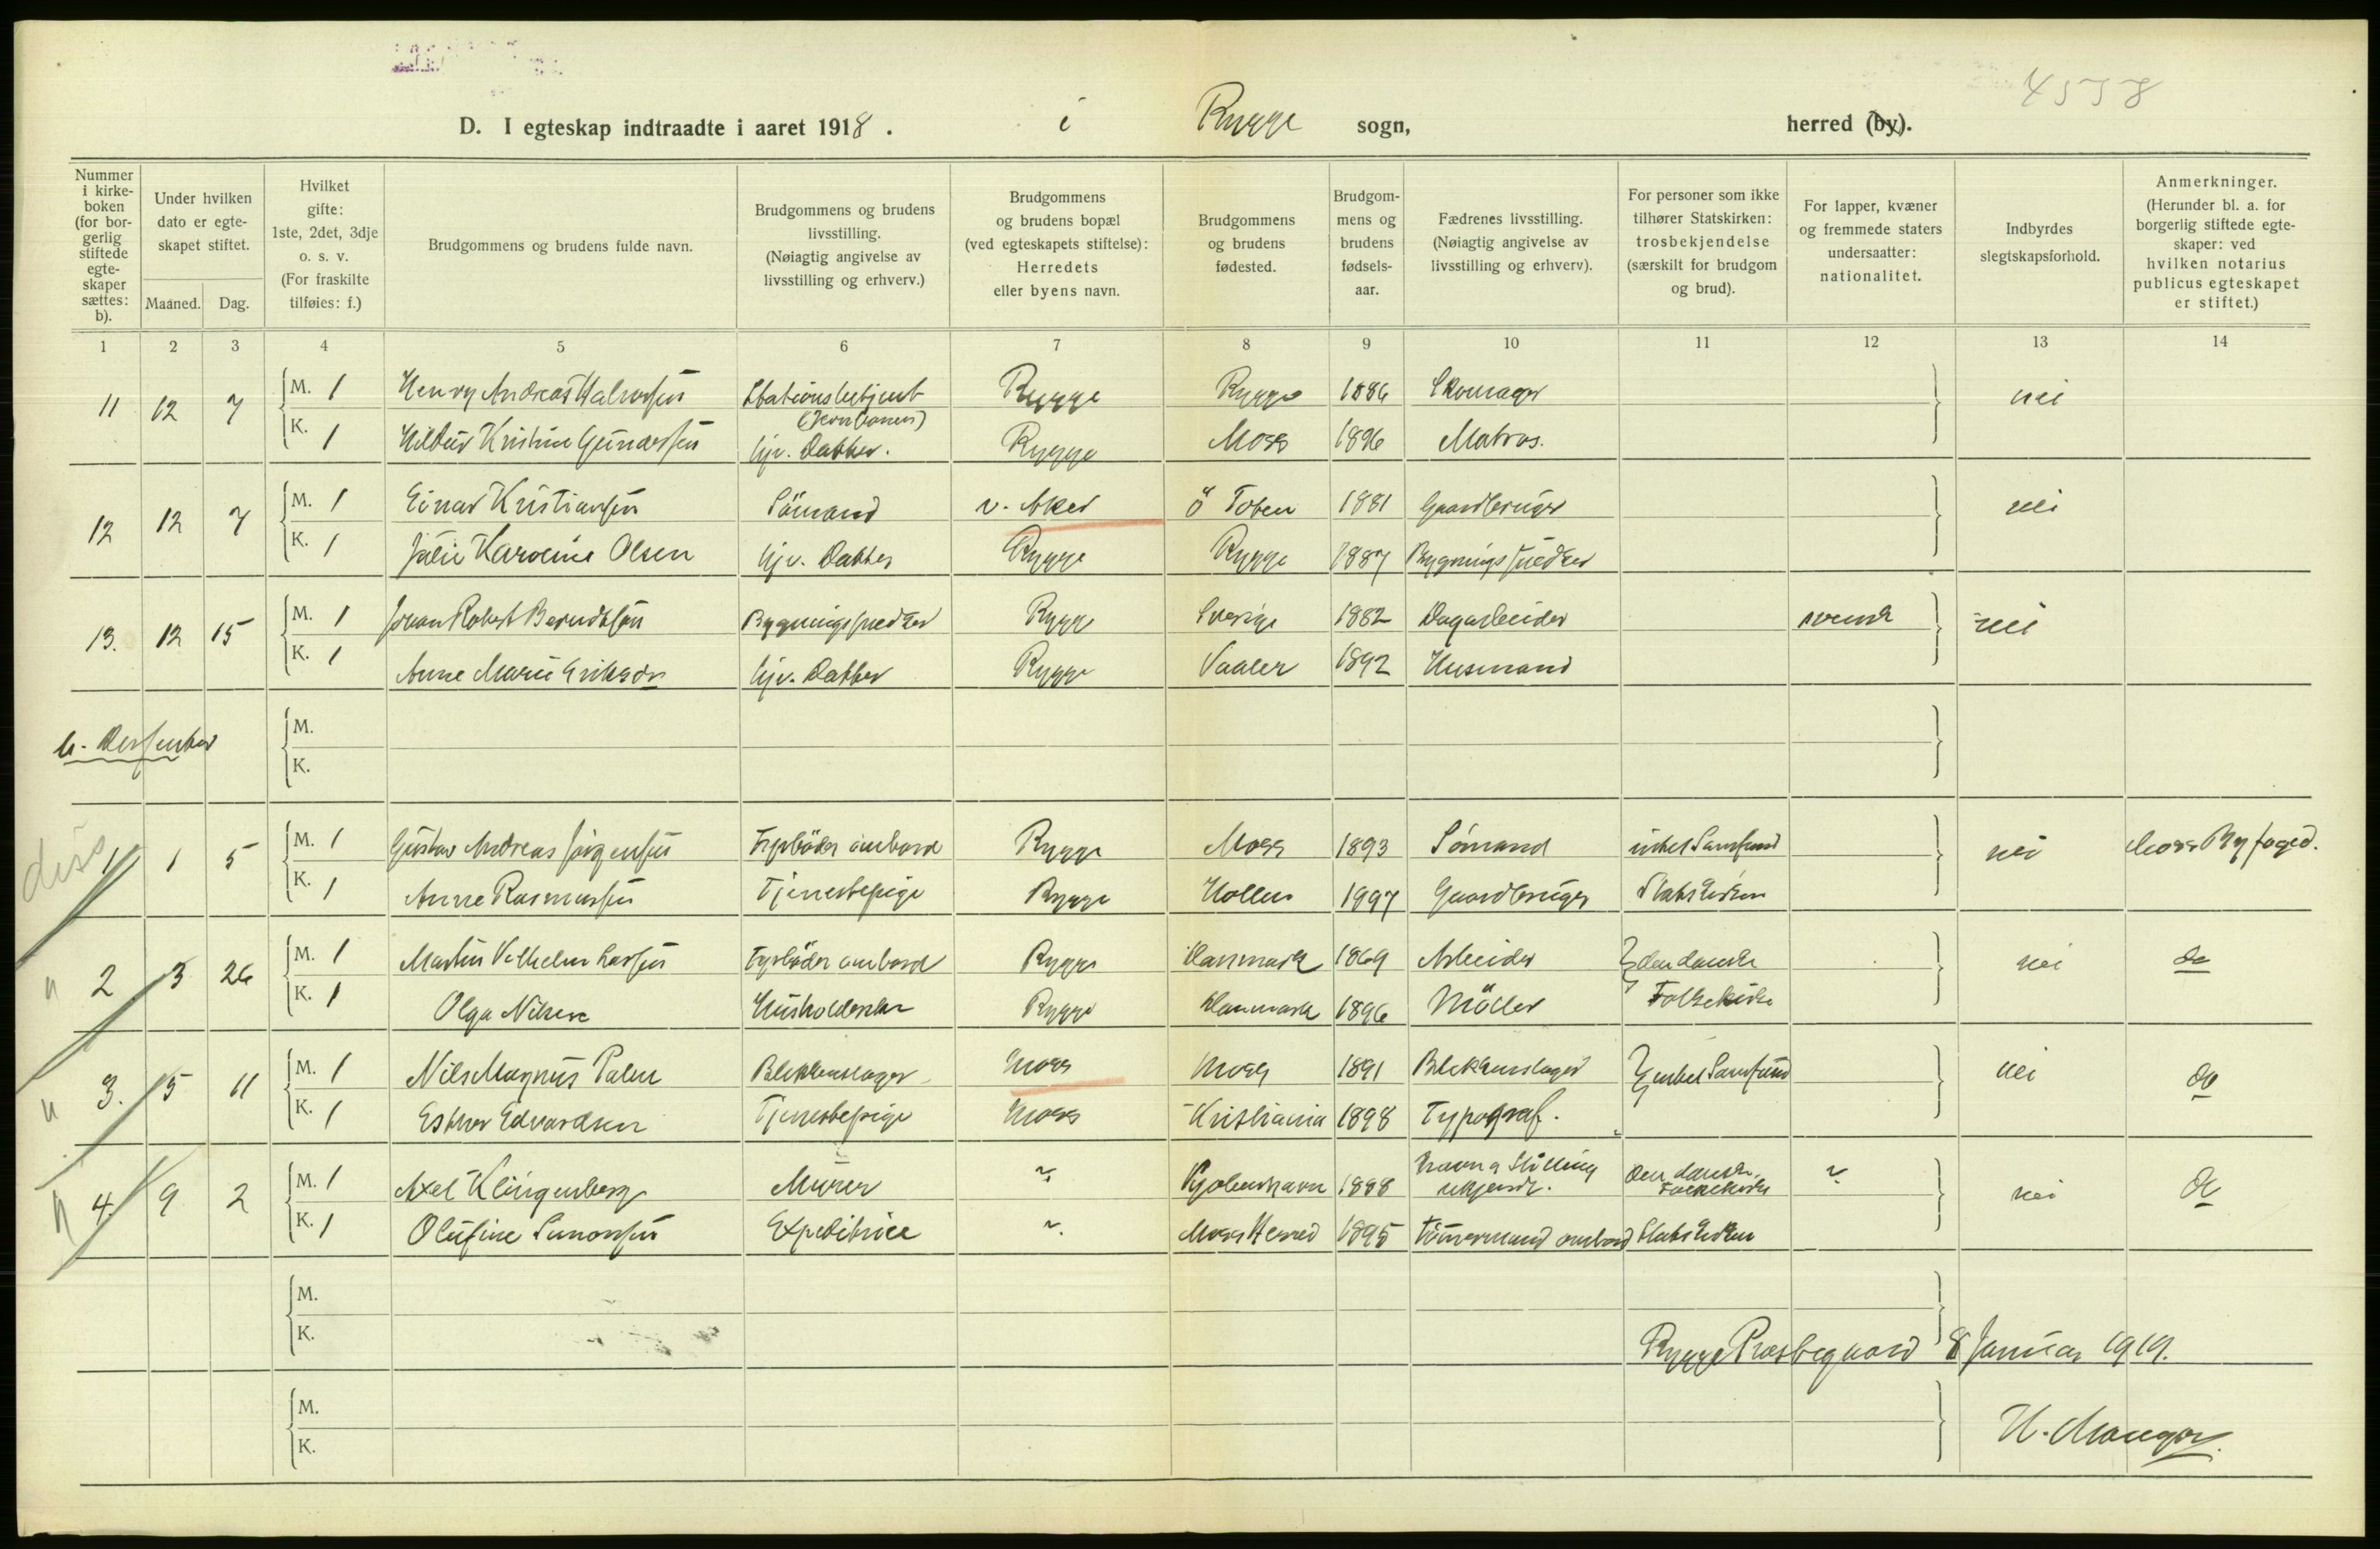 4558
D. I egteskap indtraadte i aaret 1918. i Rygge sogn, herred (by).
Nummer i kirkeboken (for borgerlig stiftede egteskaper sættes: b).
Under hvilken dato er egteskapet stiftet.
Maaned. Dag.
Hvilket gifte: 1ste, 2det, 3dje o. s. v. (For fraskilte tilføies: f.)
Brudgommens og brudens fulde navn.
Brudgommens og brudens livsstilling. (Nøiagtig angivelse av livsstilling og erhverv.)
Brudgommens og brudens bopæl (ved egteskapets stiftelse): Herredets eller byens navn.
Brudgommens og brudens fødested.
Brudgommens og brudens fødselsaar.
Fædrenes livsstilling. (Nøiagtig angivelse av livsstilling og erhverv).
For personer som ikke tilhører Statskirken: trosbekjendelse (særskilt for brudgom og brud).
For lapper, kvæner og fremmede staters undersaatter: nationalitet.
Indbyrdes slegtskapsforhold.
Anmerkninger. (Herunder bl. a. for borgerlig stiftede egteskaper: ved hvilken notarius publicus egteskapet er stiftet.)
1 2 3 4 5 6 7 8 9 10 11 12 13 14
11 12 7 M. 1 Henry Andreas Halvorsen Stationsbetjent (Jernbanen) Rygge Rygge 1886 Skomager nei
K. 1 Kristine Gundersen hjv. Datter. Rygge Moss 1896 Matros.
12 12 7 M. 1 Einar Kristiansen Sömand v. Aker ö Toten 1881 Gaardbruger nei
K. 1 Julie Karoline Olsen hjv. Datter Rygge Rygge 1887 Bygningssnedker
13. 12 15 M. 1 Johan Robert Berndtson Bygningssnedker Rygge Sverige 1882 Dagarbeider svensk nei
K. 1 Anne Marie Eriksen hjv. Datter Rygge Vaaler 1892 Husmand
b. Dissenter M.
K.
diss 1 1 5 M. 1 Gustav Andreas Jörgensen Fyrböder ombord Rygge Moss 1893 Sömand intet Samfund nei Moss Byfoged.
K. 1 Anne Rasmussen Tjenestepige Rygge 1997 Gaardbruger Statskirken
" 2 3 26 M. 1 Martin Vilhelm Larsen Fyrböder ombord Rygge Danmark 1869 Arbeider den danske nei do
K. 1 Olga Nilsen Husholderske Rygge Danmark 1896 Möller Folkekirke
" 3. 5 11 M. 1 Nils Magnus Palm Blikkenslager Moss Moss 1891 Blikkenslager intet Samfund nei do
K. 1 Esther Edvardsen Tjenestepige Moss Kristiania 1898 Typograf.
" 4. 9 2 M. 1 Axel Klingenberg Murer ~ Kjøbenhavn 1888 Navn og Stilling ukjendt. Den danske Folkekirke ~ nei do
K. 1 Olufine Simonsen Expeditrice ~ Moss Herred 1895 Tömmermand ombord Statskirken
M.
K.
Rygge Prestegaard 8 Januar 1919.
M.
K.